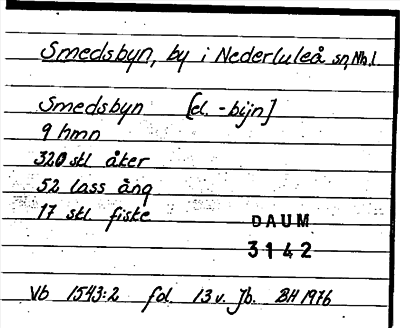 Smedsbyn, by i Nederluleå sn, Nb.l.
Smedsbyn [el. -bijn]
9 hmn
320 skl åker
52 lass äng
17 skl fiske
DAUM
3142
Vb 1543:2 fol. 13 v. Jb. BH 1976